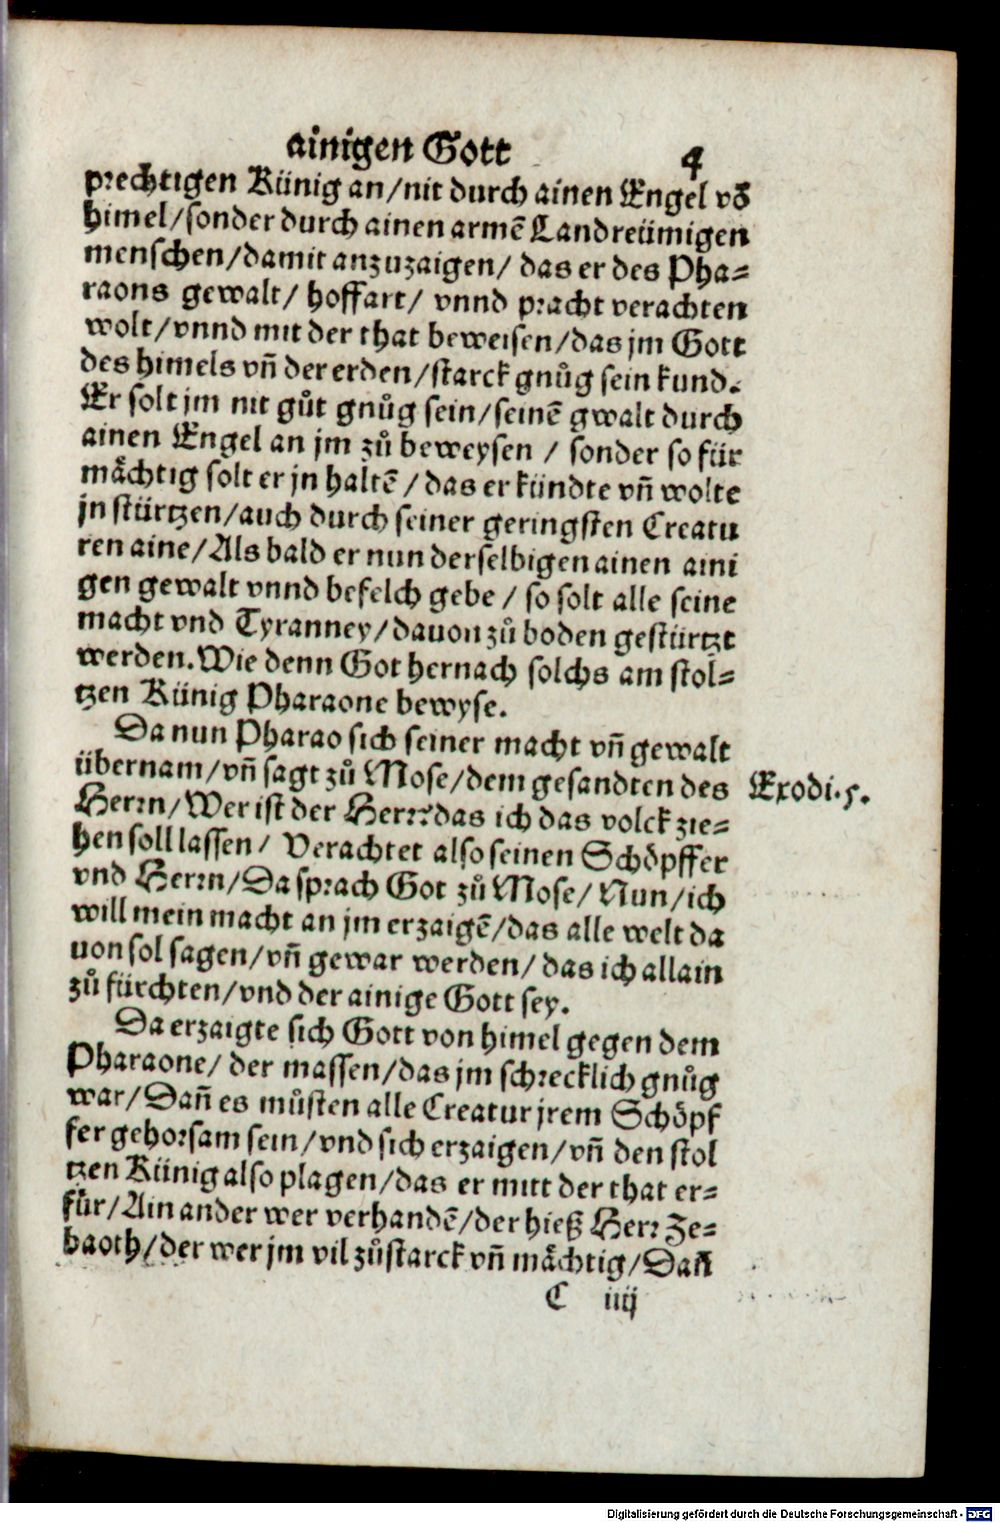 ainigen Gott 4
prechtigen Künig an/nit durch ainen Engel võ
himel/sonder durch ainen armẽ Landreümigen
menschen/damit anzuzaigen/ das er des Pha-
raons gewalt/ hoffart/ vnnd pracht verachten
wolt/vnnd mit der that beweisen/das jm Gott
des himels vñ der erden/starck gnůg sein kund.
Er solt jm nit gůt gnůg sein/seinẽ gwalt durch
ainen Engel an jm zů beweysen / sonder so für
mächtig solt er jn haltẽ /das er kündte vñ wolte
jn stürtzen/auch durch seiner geringsten Creatu
ren aine/Als bald er nun derselbigen ainen aini
gen gewalt vnnd befelch gebe / so solt alle seine
macht vnd Tyranney/dauon zů boden gestürtzt
werden.Wie denn Got hernach solchs am stol-
tzen Künig Pharaone bewyse.
Da nun Pharao sich seiner macht vñ gewalt
übernam/vñ sagt zů Mose/dem gesandten des
Exodi.5.
Herrn/Wer ist der Herr?das ich das volck zie-
hen soll lassen/ Verachtet also seinen Schöpffer
vnd Herrn/Da sprach Got zů Mose/ Nun/ich
will mein macht an jm erzaigẽ/das alle welt da
uon sol sagen/vñ gewar werden/ das ich allain
zů fürchten/vnd der ainige Gott sey.
Da erzaigte sich Gott von himel gegen dem
Pharaone/ der massen/das jm schrecklich gnůg
war/Dañ es můsten alle Creatur jrem Schöpf
fer gehorsam sein/vnd sich erzaigen/vñ den stol
tzen Künig also plagen/das er mitt der that er-
für/Ain ander wer verhandẽ/der hieß Herr Ze-
baoth/der wer jm vil zůstarck vñ mächtig/Dañ
C iiij
Digitalisierung gefördert durch die Deutsche Forschungsgemeinschaft - DFG